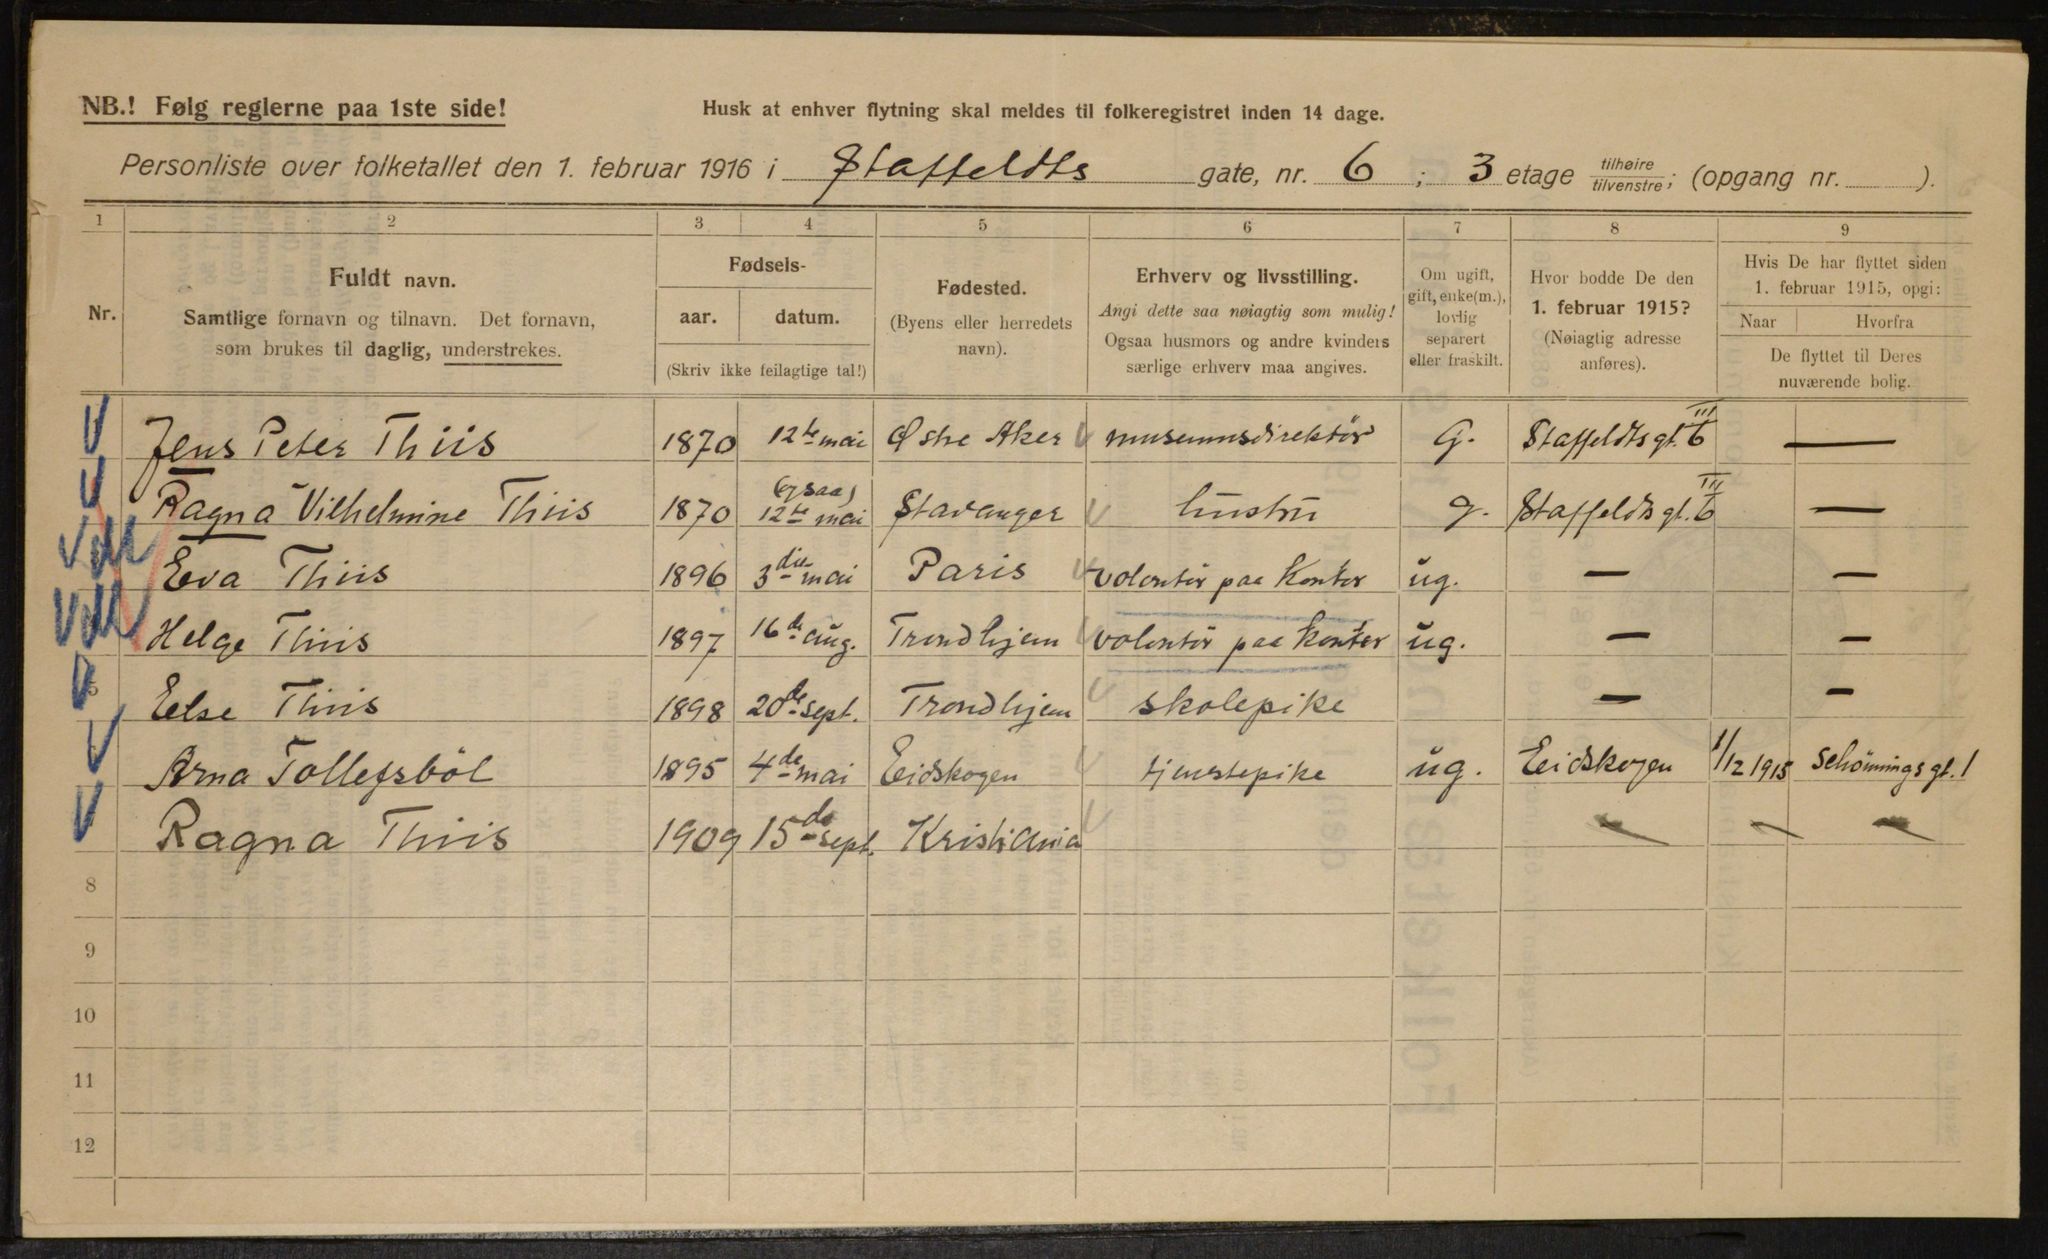 NB.! Følg reglerne paa 1ste side!
Husk at enhver flytning skal meldes til folkeregistret inden 14 dage.
Personliste over folketallet den 1. februar 1916 i Staffeldts gate, nr. 6 ; 3 etage tilhøire/tilvenstre; (opgang nr. ).
1 2 3 4 5 6 7 8 9
Nr.
Fuldt navn.
Samtlige fornavn og tilnavn. Det fornavn,
som brukes til daglig, understrekes.
Fødsels-
aar. datum.
(Skriv ikke feilagtige tal!)
Fødested.
(Byens eller herredets
navn).
Erhverv og livsstilling.
Angi dette saa nøiagtig som mulig!
Ogsaa husmors og andre kvinders
særlige erhverv maa angives.
Om ugift,
gift, enke(m.),
lovlig
separert
eller fraskilt.
Hvor bodde De den
1. februar 1915?
(Nøiagtig adresse
anføres).
Hvis De har flyttet siden
1. februar 1915, opgi:
Naar Hvorfra
De flyttet til Deres
nuværende bolig.
Jens Peter Thiis 1870 12te mai Østre Aker museumsdirektör G. Staffeldts gt. 6 III —
Ragna Vilhelmine Thiis 1870 (ogsaa) 12te mai Stavanger hustru g. Staffeldts gt. 6 III —
Eva Thiis 1896 3die mai Paris volontör paa kontor ug. — —
Helge Thiis 1897 16de aug. Trondhjem volontör paa kontor ug. — —
5 Else Thiis 1898 20de sept. Trondhjem skolepike — —
Arna Tollefsböl 1895 4de mai Eidskogen tjenstepike ug. Eidskogen 1/12 1915 Schönnings gt. 1
Ragna Thiis 1909 15de sept. Kristiania — — —
8
9
10
11
12